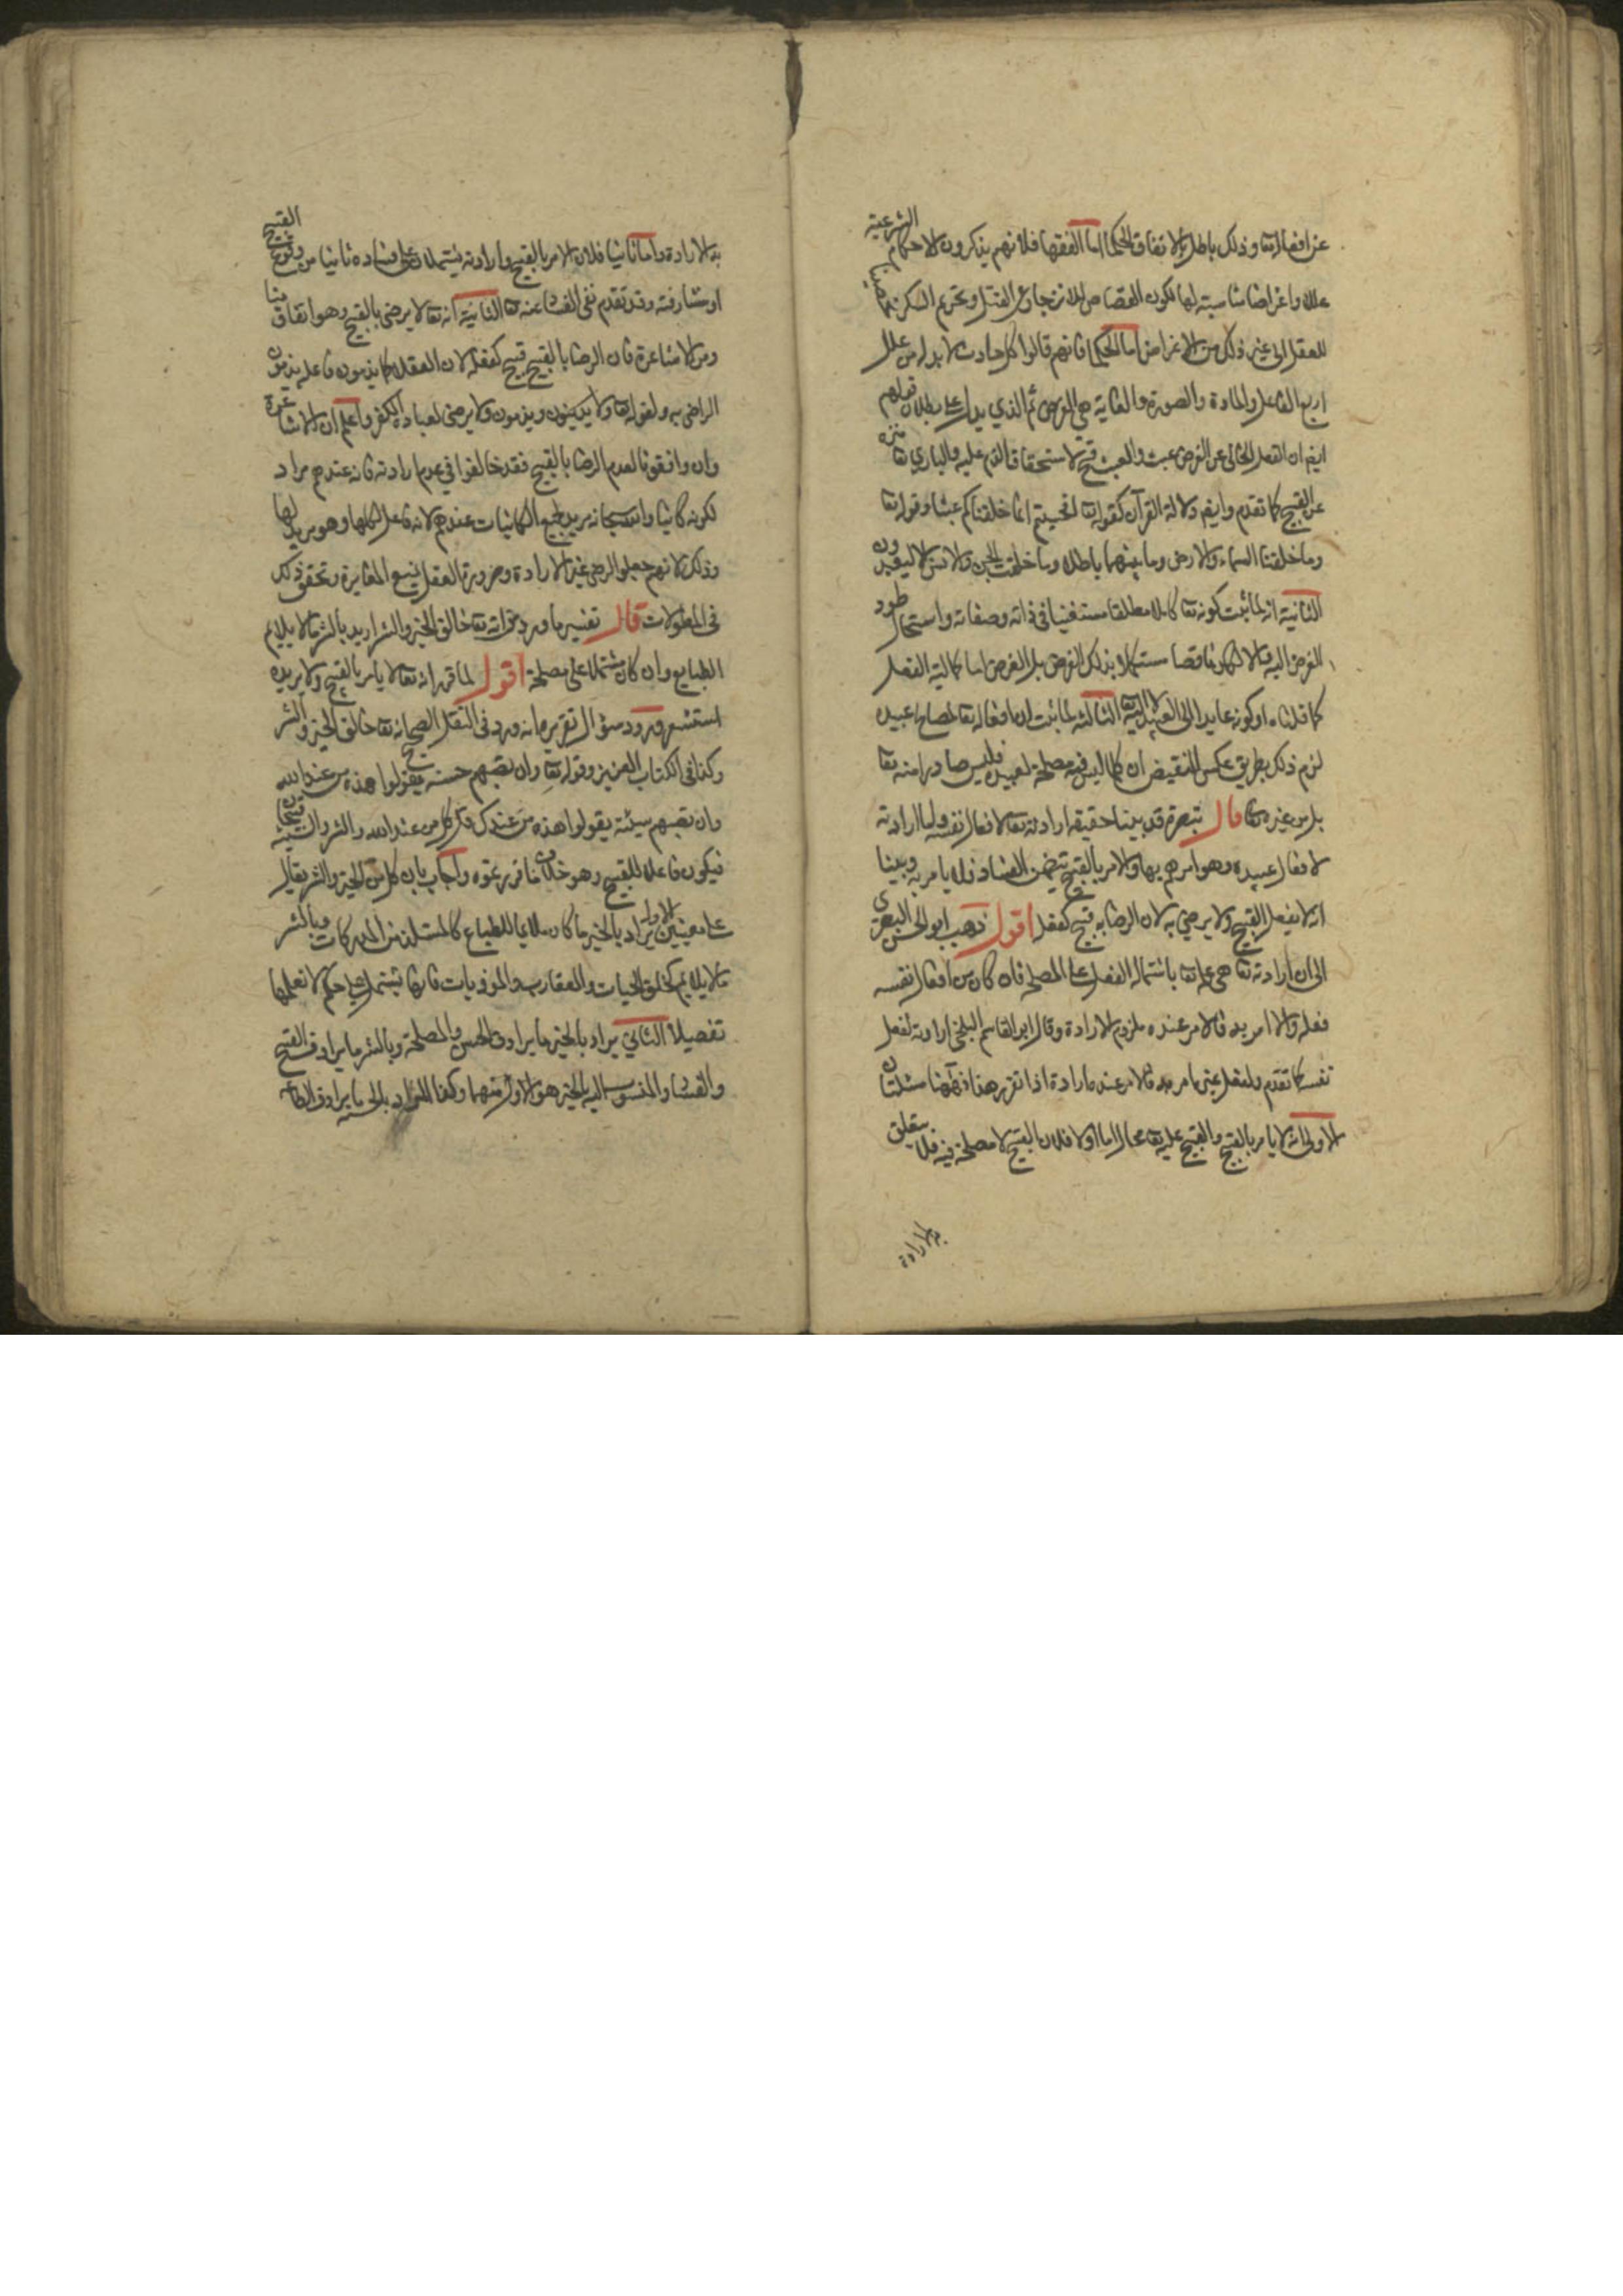 عن افعاله تعا وذلك باطل بالاتفاق الحكما اما الفقها فلانهم يذكرون للاحكام الشرعية
عللا واغراضا مناسبة لها لكون القصاص للانزجار عن القتل وتحريم السكر
للعقل الى غير ذلك من الاغراض اما الحكما فانهم قالوا كل حادث لا بد له من علل
اربع الفاعل والمادة والصورة والغاية هي الغرض ثم الذي يدل على بطلان قولهم
ايض ان الفعل الخالى عن الغرض عبث والعبث قبيح لاستحقاق الذم عليه والباري تعا منزه
عن القبيح كما تقدم وايض دلالة القرآن كقوله تعا افحسبتم انما خلقناكم عبثا وقوله تعا
وما خلقنا السماء والارض وما بينهما باطلا وما خلقت الجن والانس الا ليعبدون
الثانية انه لما ثبت كونه تعا كاملا مطلقا مستغنيا في ذاته وصفاته واستحال عود
الغرض اليه والا لكان ناقصا مستكملا بذلك الغرض بل الغرض اما كمالية الفعل
كما قلناه او كونه عايدا الى العبيد لا اليه تعا الثالثة لما ثبت ان افعاله تعا لمصالح عبيده
لزم ذلك بطريق عكس النقيض ان كلما ليس فيه مصلحة لعبيده فليس صادرا منه تعا
بل من غيره تعا قال تبصرة قد بينا حقيقة ارادته تعا لافعال نفسه واما ارادته
لافعال عبيده وهو امرهم بها والامر بالقبيح يتضمن الفساد فلا يامر به وبينا
انه لا يفعل القبيح ولا يرضى به لان الرضا به قبيح كفعله اقول ذهب ابو الحسن البصرى
الى ان ارادته تعا هي علمه تعا باشتمال الفعل على المصلحة فان كان من افعال نفسه
فعله والا امر به فالامر عنده ملزوم الارادة وقال ابو القاسم البلخي ارادته لفعل
نفسه كما تقدم ولفعل غيره امره به فالامر عنده ارادة اذا تقرر هذا فههنا مسئلتان
الاولى انه لا يامر بالقبيح والقبيح عليه تعا محال اما اولا فلان القبيح لا مصلحة فيه فلا يتعلق
به الارادة
به الارادة واما ثانيا فلان الامر بالقبيح وارادته يشتملان على فساده ثانيا من وقوع القبيح
او مشارفته وقد تقدم نفى الفساد عنه تعا الثانية انه تعا لا يرضى بالقبيح وهو اتفاق منا
ومن الاشاعرة فان الرضا بالقبيح قبيح كفعله لان العقلا كما يذمون فاعله يذمون
الراضى به ولقوله تعا ولا يرضى لعباده الكفر واعلم ان الاشاعرة
وان وافقونا لعدم الرضا بالقبيح فقد خالفوا في عدم ارادته فانه عندهم مراد
لكونه كائنا والله سبحانه يريد لجميع الكائنات عندهم لانه فاعل لكلها وهو مريد لها
وذلك لانهم جعلوا الرضى غير الارادة وضرورة العقل المغايرة وتحقق ذلك
فى المطولات قال تفسير ما ورد من انه تعا خالق الخير والشر اريد بالشر ما لا يلايم
الطبايع وان كان مشتملا على مصلحة اقول لما قرر انه تعا لا يامر بالقبيح ولا يريده
استشعر ورود سؤال تقريره انه ورد فى النقل الصحيح انه تعا خالق الخير والشر
وكذا فى الكتاب العزيز وقوله تعا وان تصبهم حسنة يقولوا هذه من عند الله
وان تصبهم سيئة يقولوا هذه من عندك قل كل من عند الله والشر والسيئة قبيحان
فيكون فاعلا للقبيح وهو خلاف ما قررتموه واجاب بان كلا من الخير والشر يقال
على معنيين الاول يراد بالخير ما كان ملايما للطباع كالمستلذ من المدركات وبالشر
ما لا يلايم كخلق الحيات والعقارب والموذيات فانها تشتمل على حكم لا نعلمها
تفصيلا الثاني يراد بالخير ما يرادف الحسن والمصلحة وبالشر ما يرادف القبيح
والفساد والمنسوب اليه بالخير هو الاول منهما وكذا المراد بالحسنة ما يرادف الطاعة